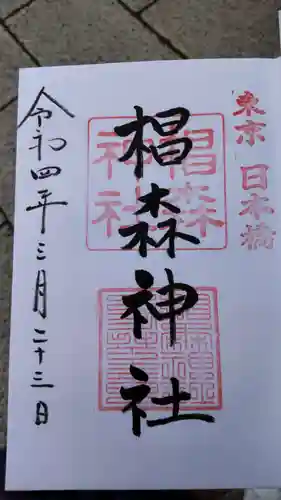 東京 日本橋
椙森神社
椙森
神社
令和四年三月二十三日